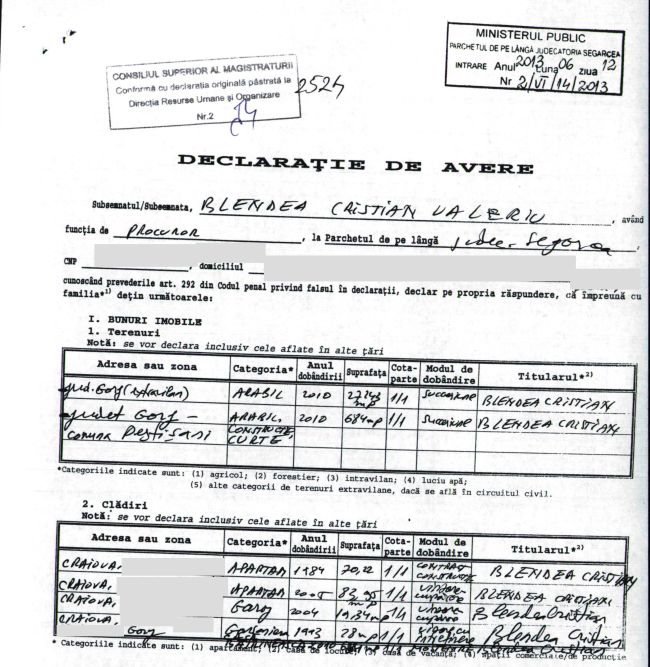 MINISTERUL PUBLIC
PARCHETUL DE PE LÂNGĂ JUDECATORIA SEGARCEA
INTRARE Anul 2013 Luna 06 ziua 12
Nr 2/VI/14/2013
CONSILIUL SUPERIOR AL MAGISTRATURII
Conformă cu declarația originală păstrată la
Direcția Resurse Umane și Organizare
Nr.2
2524
DECLARAŢIE DE AVERE
Subsemnatul/Subsemnata, BLENDEA CRISTIAN VALERIU, având
funcţia de PROCUROR, la Parchetul de pe lângă
CNP , domiciliul
cunoscând prevederile art. 292 din Codul penal privind falsul în declaraţii, declar pe propria răspundere, că împreună cu
familia*1) deţin următoarele:
I. BUNURI IMOBILE
1. Terenuri
Notă: se vor declara inclusiv cele aflate în alte ţări
Adresa sau zona Categoria* Anul dobândirii Suprafaţa Cota-parte Modul de dobândire Titularul*2)
Jud. Gorj (extravilan) ARABIL 2010 mp 1/1 succesiune BLENDEA CRISTIAN
Judet Gorj - ARABIL, 2010 684 mp 1/1 succesiune BLENDEA CRISTIAN
comuna Peştişani CONSTRUCTII, CURTE
*Categoriile indicate sunt: (1) agricol; (2) forestier; (3) intravilan; (4) luciu apă;
(5) alte categorii de terenuri extravilane, dacă se află în circuitul civil.
2. Clădiri
Notă: se vor declara inclusiv cele aflate în alte ţări
Adresa sau zona Categoria* Anul dobândirii Suprafaţa Cota-parte Modul de dobândire Titularul*2)
CRAIOVA, 1984 1/1 CONTRACT CONSTRUCTIE BLENDEA CRISTIAN
CRAIOVA, 2005 mp 1/1 BLENDEA CRISTIAN
CRAIOVA, Garaj 2004 Blendea Cristian
CRAIOVA, Gorj 1993 28 mp 1/1 Blendea Cristian
* Categoriile indicate sunt: (1) apartament; (2) casă de locuit; (3) casă de vacanţă; (4) spaţii comerciale/de producţie